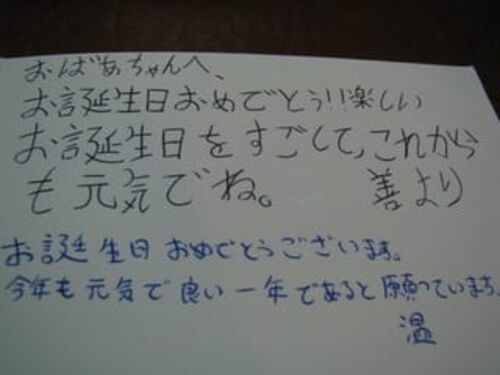 おばあちゃんへ、
お誕生日おめでとう!!楽しい
お誕生日をすごして、これから
も元気でね。 善より
お誕生日おめでとうございます。
今年も元気で良い一年であると願っています。
温